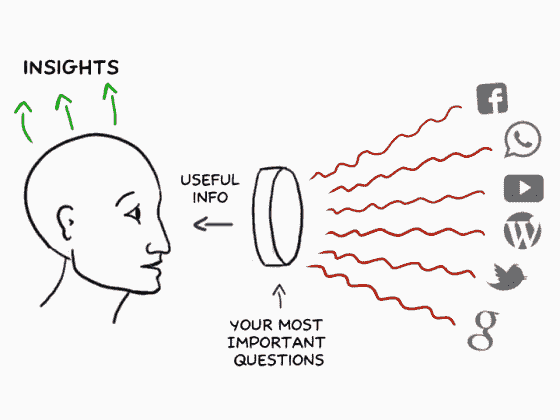 INSIGHTS
USEFUL
INFO
YOUR MOST
IMPORTANT
QUESTIONS